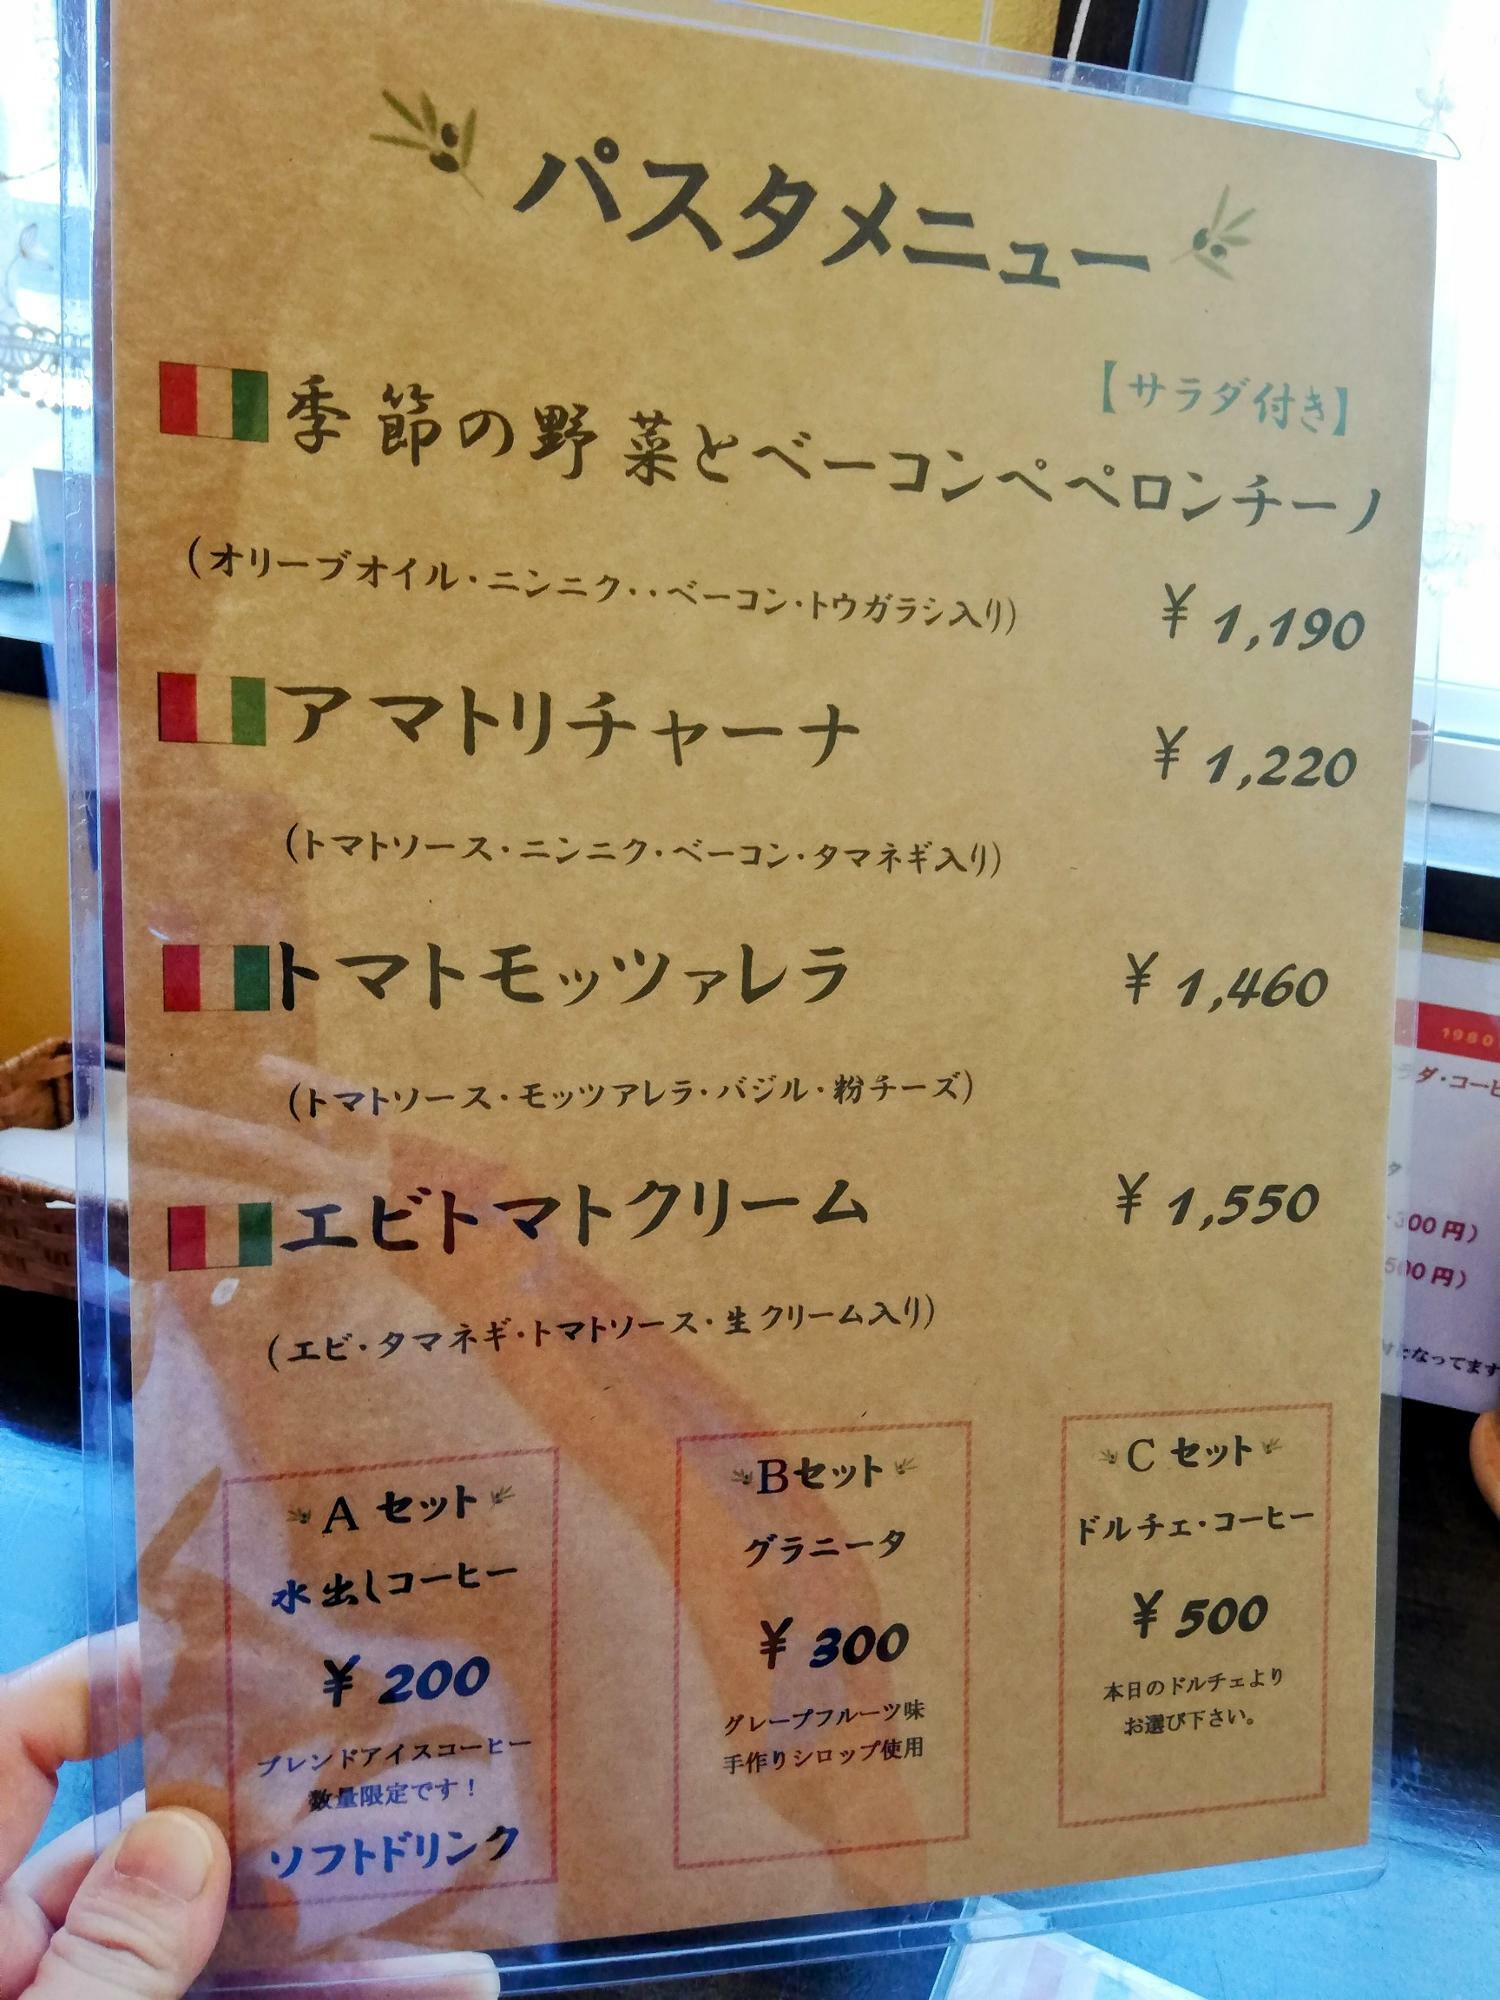 パスタメニュー
【サラダ付き】
季節の野菜とベーコンペペロンチーノ
(オリーブオイル・ニンニク・・ベーコン・トウガラシ入り)
¥ 1,190
アマトリチャーナ ¥ 1,220
(トマトソース・ニンニク・ベーコン・タマネギ入り)
トマトモッツァレラ ¥ 1,460
(トマトソース・モッツアレラ・バジル・粉チーズ)
エビトマトクリーム ¥ 1,550
(エビ・タマネギ・トマトソース・生クリーム入り)
A セット
水出しコーヒー
¥ 200
ブレンドアイスコーヒー
数量限定です！
ソフトドリンク
Bセット
グラニータ
¥ 300
グレープフルーツ味
手作りシロップ使用
C セット
ドルチェ・コーヒー
¥ 500
本日のドルチェより
お選び下さい。
1980
ダ・コーヒ
300円)
500円)
なってます